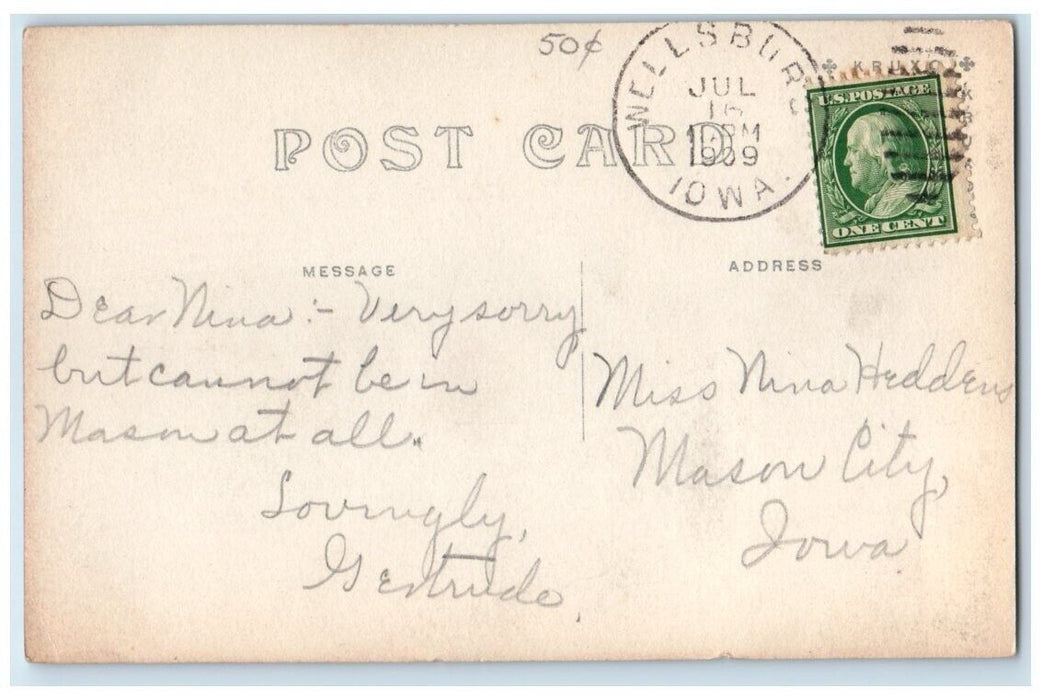 50¢
WELLSBURG
JUL
16
1909
IOWA.
KRUXO
U.S. POSTAGE
ONE CENT
POST CARD
MESSAGE
ADDRESS
Dear Nina:- Very sorry
but cannot be in
Mason at all.
Lovingly,
Gertrude.
Miss Nina Heddens
Mason City,
Iowa